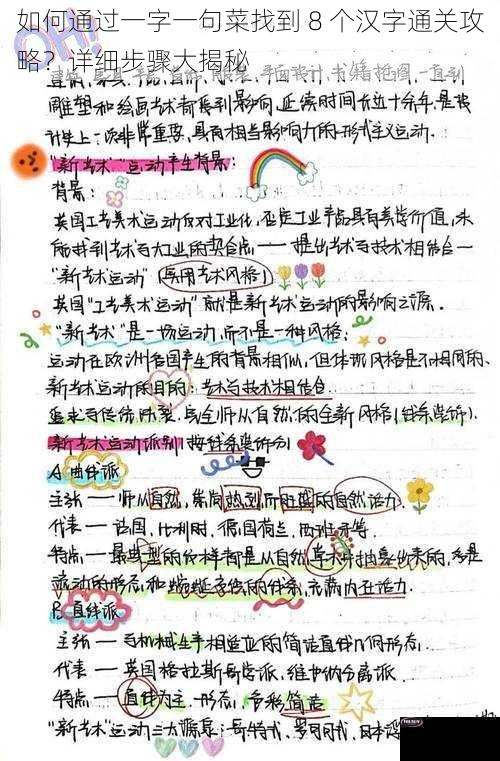 如何通过一字一句菜找到 8 个汉字通关攻
略？详细步骤大揭秘
雕塑和绘画艺术都受到影响，延续时间长达十余年，是设
计史上一次非常重要、具有相当影响力的形式主义运动.
"新艺术"运动产生背景：
背景：
英国工艺美术运动反对工业化，否定工业产品具有美学价值，未
能找到艺术与大工业的契合点——提出艺术与技术相结合—
"新艺术运动"（实用艺术风格）
英国"工艺美术运动"就是新艺术运动的影响之源.
"新艺术"是一场运动，而不是一种风格；
运动在欧洲各国产生的背景相似，但体现风格是不相同的、
新艺术运动原因的：艺术与技术相结合.
追求与传统决裂，完全师从自然的全新风格（线条装饰）.
新艺术运动派别（按线条装饰分）
A. 曲线派
主张——师从自然，崇尚热烈而旺盛的自然活力.
代表——法国，比利时，德国，荷兰，西班牙等.
特点——最典型的纹样都是从自然草木中抽象出来的，多是
流动的形态和蜿蜒交织的线条，充满内在活力.
B. 直线派
主张——与机械生产相适应的简洁直线几何形态.
代表——英国格拉斯哥学派，维也纳分离派.
特点——直线为主.形态，色彩简洁
"新艺术"运动三大源泉：哥特式，罗可可式，日本